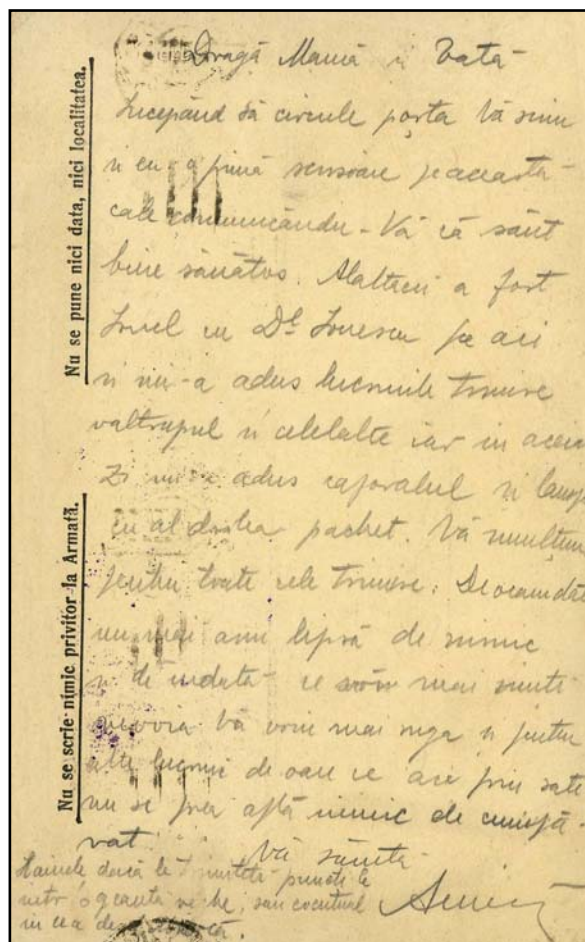 Nu se pune nici data, nici localitatea.
Nu se scrie nimic privitor la Armată.
Dragă Mamă și Tată
Începând să circule poșta Vă scriu
și eu o primă scrisoare pe această
cale comunicându-Vă că sânt
bine sănătos. Alaltăeri a fost
Ionel cu Dl Ionescu pe aci
și mi-a adus lucrurile trimise
valtrapul și celelalte iar în aceiași
zi mi-a adus caporalul și
cu al doilea pachet. Vă mulțumesc
pentru toate cele trimise. Deocamdată
nu mai am lipsă de nimic
și de îndată ce voiu mai simți
nevoia Vă voiu mai ruga și pentru
alte lucruri de oare ce aci prin sate
nu se prea află nimic de
Vă sărută
Hainele dacă le trimiteți puneți le
într'o geantă veche, sau
în cea de